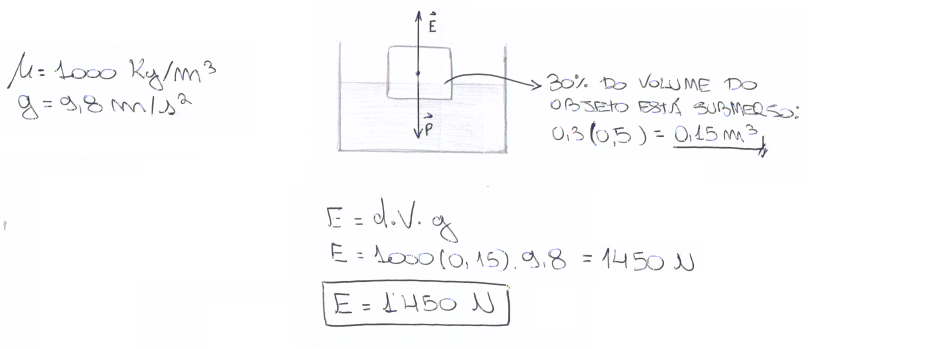 μ = 1000 Kg/m³
g = 9,8 m/s²
E⃗
P⃗
30% DO VOLUME DO
OBJETO ESTÁ SUBMERSO:
0,3(0,5) = 0,15 m³
E = d.V.g
E = 1000(0,15).9,8 = 1450 N
E = 1450 N